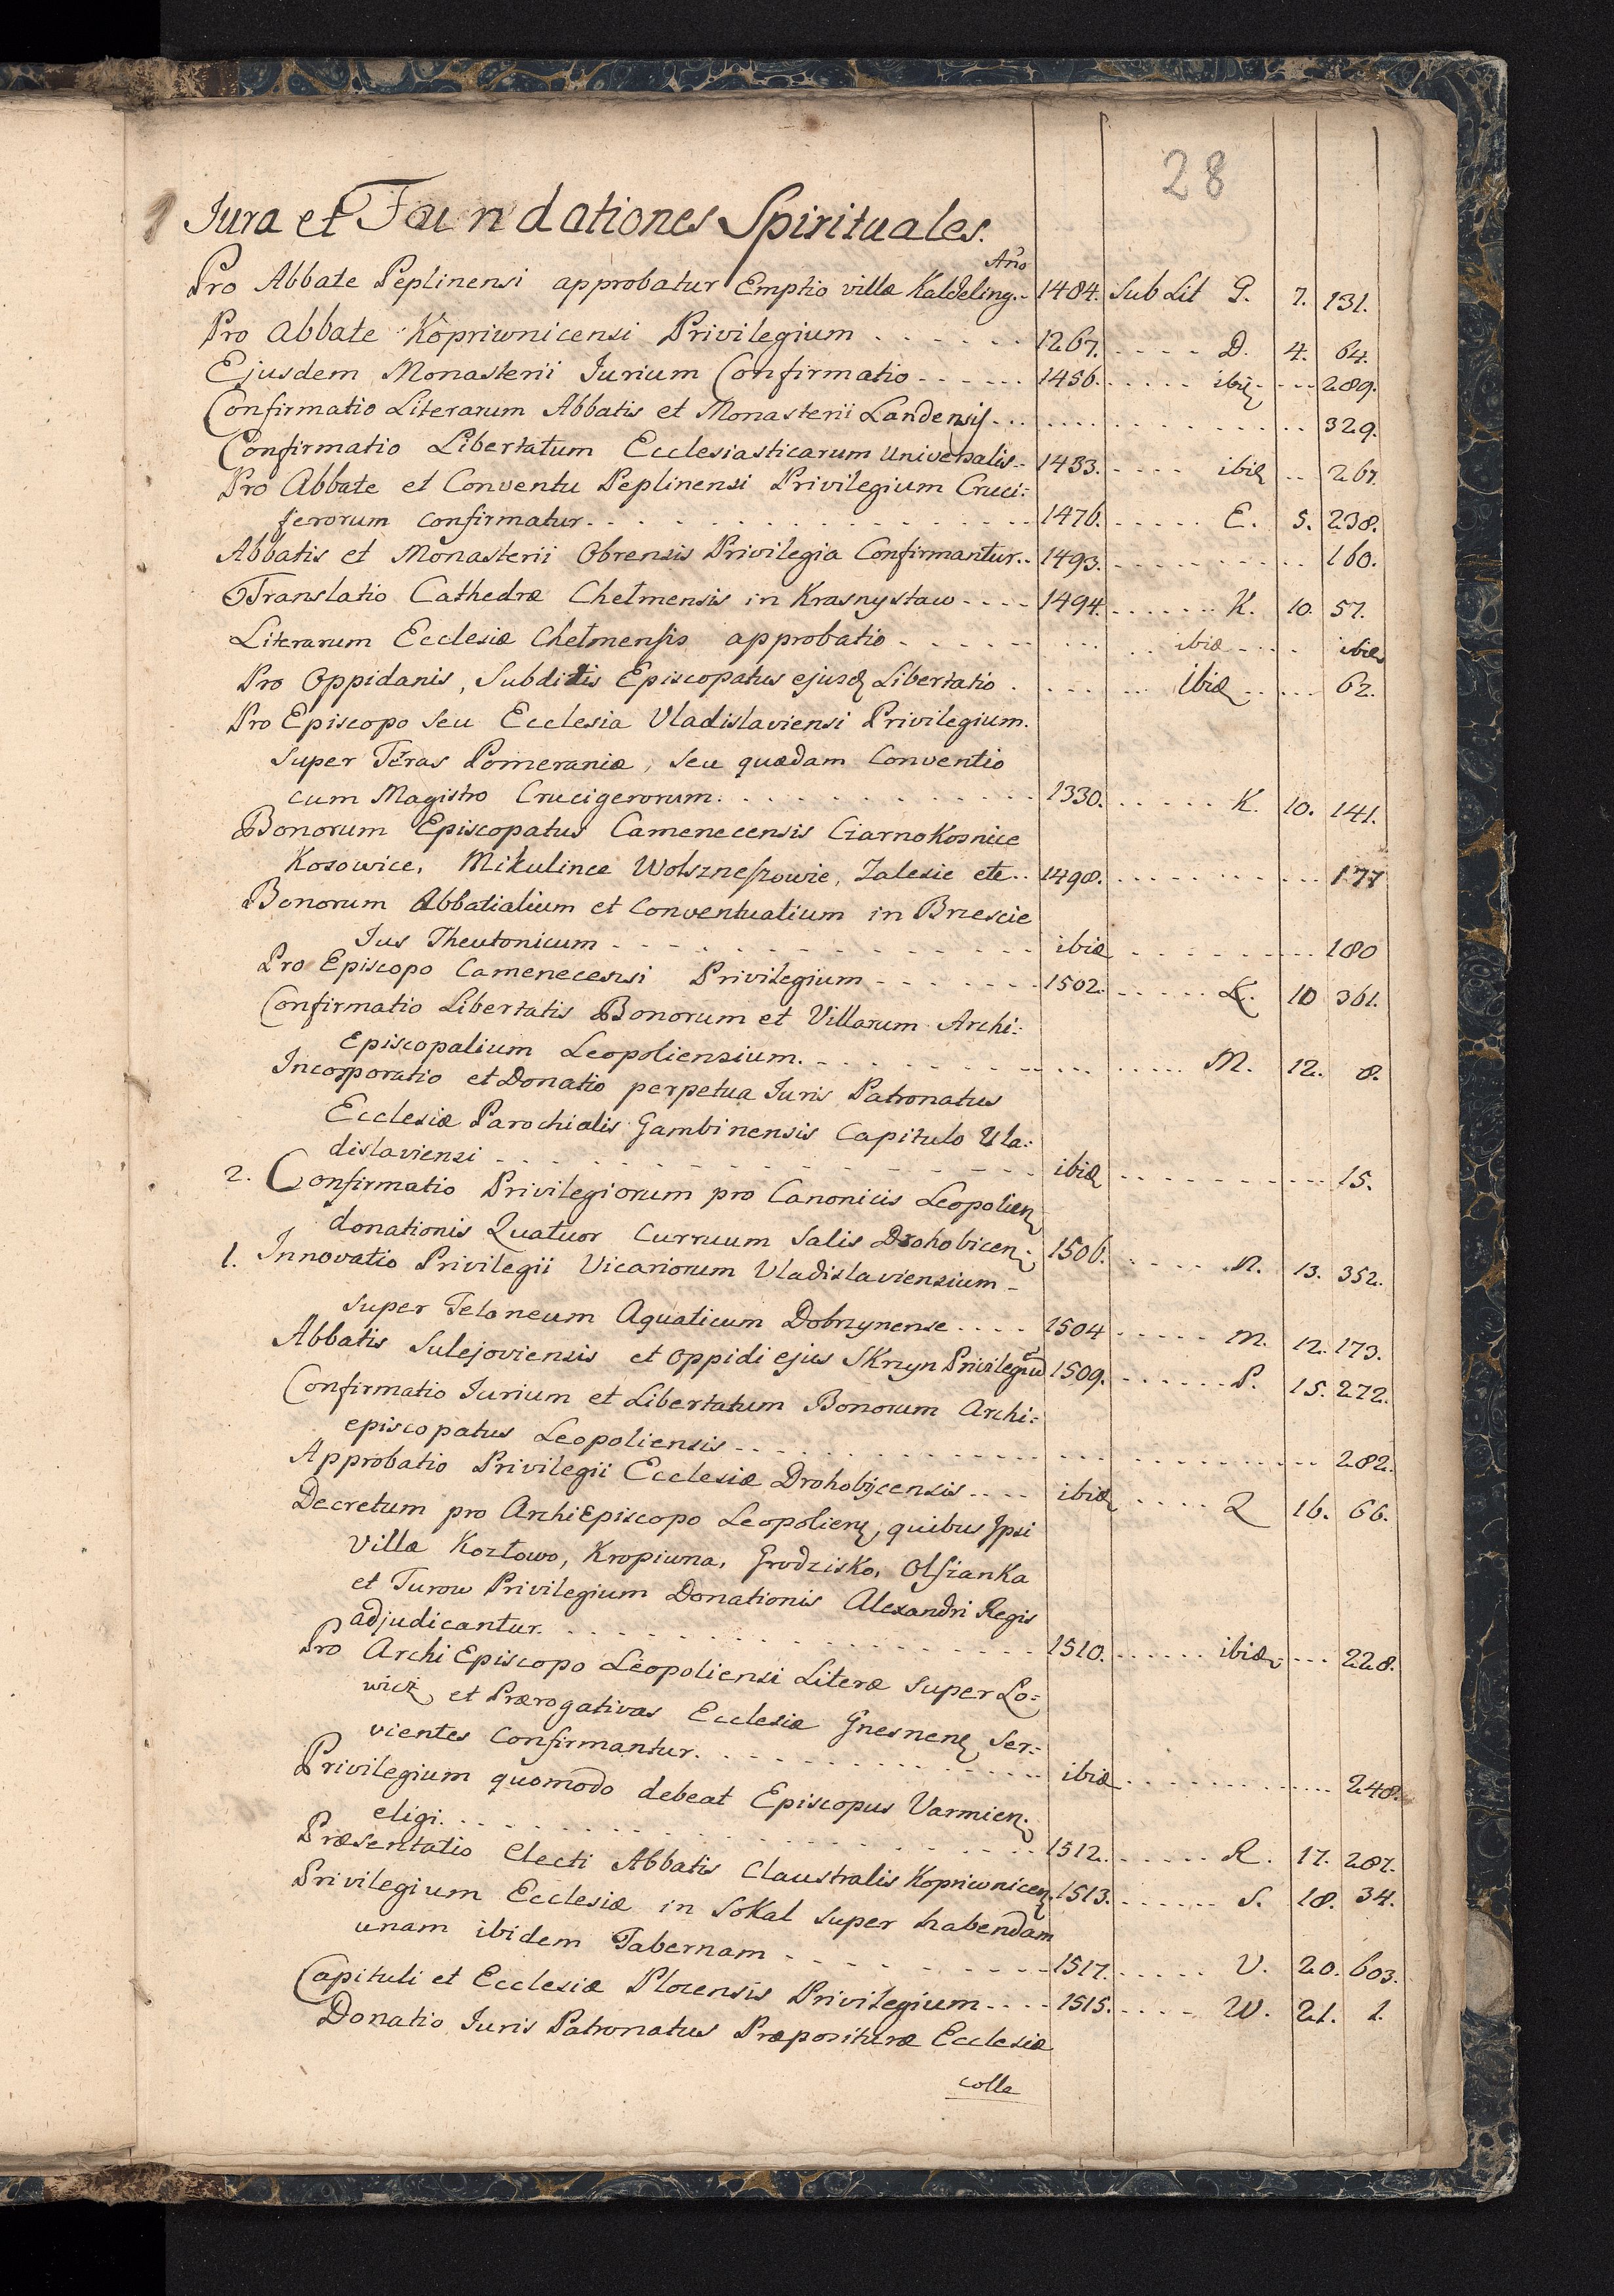 28
Jura et Foundationes Spirituales.
Año
Pro Abbate Peplinensi approbatur Emptio villæ Kaldeling.- 1484. Sub Lit G. 7. 131.
Pro Abbate Kopriwnicensi Privilegium . . . . . . 1267. - - - - D. 4. 64.
Ejusdem Monasterii Jurium Confirmatio - - - - - - 1456. . . . . . ibi - - - 289.
Confirmatio Literarum Abbatis et Monasterii Landensis . . . 329.
Confirmatio Libertatum Ecclesiasticarum Universalis - - 1433. - - - - ibid - - 267.
Pro Abbate et Conventu Peplinensi Privilegium Cruci:
ferorum confirmatur. - - - - - - 1476. - - - - - E. 5. 238.
Abbatis et Monasterii Obrensis Privilegia Confirmantur. - 1493. - - - - - - 160.
Translatio Cathedræ Chełmensis in Krasnystaw - - - - 1494. - - - - - - K. 10. 57.
Literarum Ecclesiæ Chełmensis approbatio - - - - - - - - ibid - - - - ibid
Pro Oppidanis, Subditis Episcopatus ejusd Libertatio . - - - - - - ibid - - - - 62.
Pro Episcopo seu Ecclesia Vladislaviensi Privilegium.
super Terras Pomeraniæ, seu quædam Conventio
cum Magistro Crucigerorum. - - - - - - 1330. - - - - - K. 10. 141.
Bonorum Episcopatus Camenecensis Czarnokosnice
Kosowice, Mikulince Wolsznessowie, Zalesie etc - - 1498. - - - - - - 177
Bonorum Abbatialium et Conventualium in Brzescie
Jus Theutonicum - - - - - - ibid - - - - - - 180
Pro Episcopo Camenecensi Privilegium - - - - - - 1502. - - - - - K. 10 361.
Confirmatio Libertatis Bonorum et Villarum Archi:
Episcopalium Leopoliensium. - - - - - - M. 12. 8.
Incorporatio et Donatio perpetua Juris Patronatus
Ecclesiæ Parochialis Gambinensis Capitulo Vla:
dislaviensi - - - - - - ibid - - - - - - 15.
2. Confirmatio Privilegiorum pro Canonicis Leopolien
donationis Quatuor Curruum Salis Drohobicen. 1506. - - - - - N. 13. 352.
1. Innovatio Privilegii Vicariorum Vladislaviensium -
super Teloneum Aquaticum Dobrzynense - - - - 1504 - - - - - M. 12. 173.
Abbatis Sulejoviensis et Oppidi ejus Skrzyn Privilegiu 1509. - - - - - - P. 15. 272.
Confirmatio Jurium et Libertatum Bonorum Archi:
episcopatus Leopoliensis - - - - - - 282.
Approbatio Privilegii Ecclesiæ Drohobÿcensis - - - - ibid - - - - Q 16. 66.
Decretum pro ArchiEpiscopo Leopolien, quibus Ipsi
Villæ Kozłowo, Kropiwna, Grodzisko, Olszanka
et Turow Privilegium Donationis Alexandri Regis
adjudicantur. - - - - - - 1510. - - - - - - ibid - - - 228.
Pro Archi Episcopo Leopoliensi Literæ super Lo:
wicz et Prærogativas Ecclesiæ Gnesnen Ser:
vientes Confirmantur. - - - - - - ibid - - - - - - 248.
Privilegium quomodo debeat Episcopus Varmien.
eligi. - - - - - - 1512. - - - - - R. 17. 287.
Præsentatio Electi Abbatis Claustralis Kopriwnicen. 1513. - - - - - - S. 18. 34.
Privilegium Ecclesiæ in Sokal super habendam
unam ibidem Tabernam - - - - - - 1517. - - - - - V. 20. 603.
Capituli et Ecclesiæ Plocensis Privilegium - - - - 1515. - - - - W. 21. 1.
Donatio Juris Patronatus Præpositura Ecclesiæ
colle